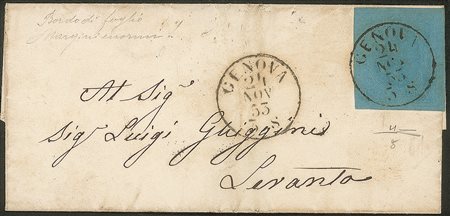 Bordo di foglio
Margini enormi
GENOVA
24
NOV
53
GENOVA
24
NOV
53
Al Sigr
Sigr Luigi Ghiggini
Levanto
4
8